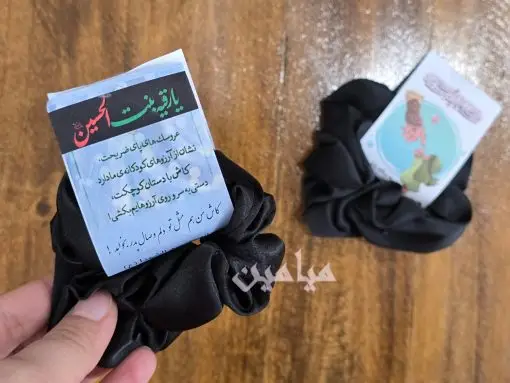 یا رقیه بنت الحسین
عروسک های پای ضریحت،
نشان از آرزوهای کودکانه ی ما دارد
کاش با دستان کوچکت،
دستی به سر و روی آرزوهایم بکشی!
کاش من هم مثل تو دلم وصال پدر بخواهد!
میامین